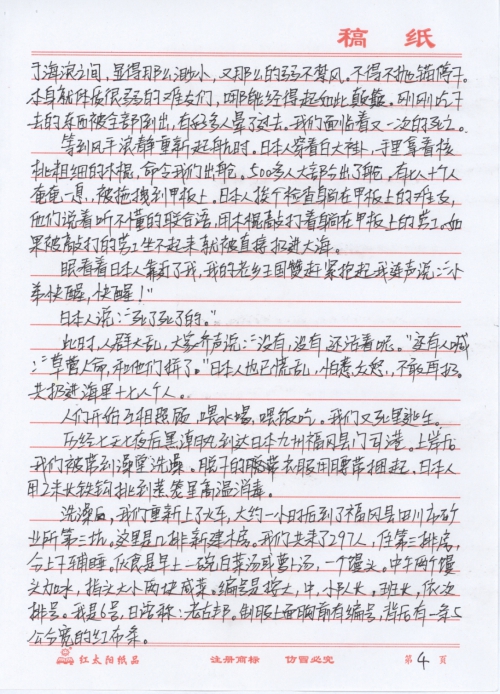 稿 纸
于海浪之间，显得那么渺小，又那么的弱不禁风。不得不抛锚停下。
本身就体质很弱的难友们，哪能经得起如此颠簸。刚刚吃下
去的东西被全部倒出，有好多人晕了过去。我们面临着又一次的死亡。
等到风平浪静重新起航时，日本人穿着白大褂，手里拿着核
桃粗细的木棍，命令我们出舱。500多人大部分出了舱，有七八十个人
奄奄一息，被拖拽到甲板上。日本人挨个检查躺在甲板上的难友，
他们说着听不懂的联合语，用木棍敲打着躺在甲板上的劳工。如
果被敲打的劳工坐不起来就被直接扔进大海。
眼看着日本人靠近了我，我的老乡王国赞赶紧抱起我连声说："小
弟快醒，快醒！"
日本人说："死了死了的。"
此时，人群大乱，大家齐声说："没有，没有，还活着呢。"还有人喊
"草菅人命，和他们拼了。"日本人也已慌乱，怕惹众怒，不敢再扔。
共扔进海里十七八个人。
人们开始互相照顾，喂水喝，喂饭吃。我们又死里逃生。
历经七天七夜后黑漂风到达日本九州福冈县门司港。上岸后
我们被带到澡堂洗澡。脱下的衣服用腰带捆起，日本人
用2米长铁钩挑到蒸笼里高温消毒。
洗澡后，我们重新上了火车，大约一小时后到了福冈县田川市矿
业所第三坑，这里是几排新建木房。我们共来了297人，住第三排房，
分上下铺睡，饮食是早上一碗白菜汤或萝卜汤，一个馒头。中午两个馒
头加味，指头大小两块咸菜。编号是按大，中，小队长。班长，依次
排号。我是6号，日语称：老古郎。制服上面胸前有编号，背后有一条5
公分宽的红布条。
红太阳纸品 注册商标 仿冒必究 第 4 页